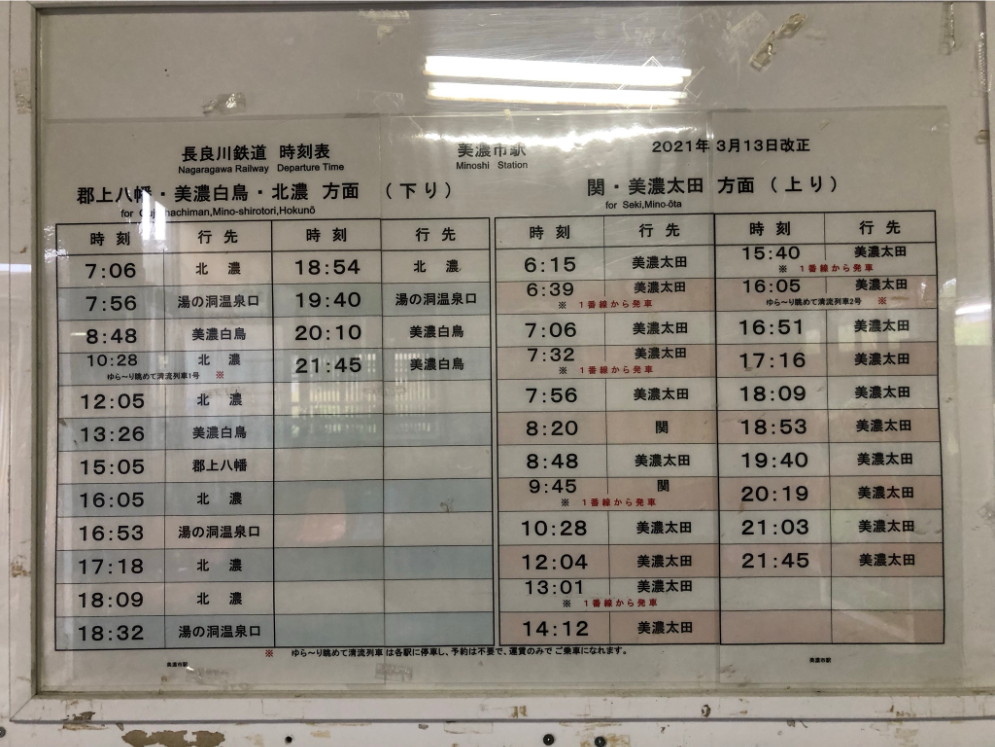 長良川鉄道 時刻表
Nagaragawa Railway Departure Time
美濃市駅
Minoshi Station
2021年 3月13日改正
郡上八幡・美濃白鳥・北濃 方面 (下り)
for machiman,Mino-shirotori,Hokunō
時刻 行先 時刻 行先
7:06 北濃 18:54 北濃
7:56 湯の洞温泉口 19:40 湯の洞温泉口
8:48 美濃白鳥 20:10 美濃白鳥
10:28 北濃 21:45 美濃白鳥
ゆら~り眺めて清流列車1号 ※
12:05 北濃
13:26 美濃白鳥
15:05 郡上八幡
16:05 北濃
16:53 湯の洞温泉口
17:18 北濃
18:09 北濃
18:32 湯の洞温泉口
関・美濃太田 方面 (上り)
for Seki,Mino-ōta
時刻 行先 時刻 行先
6:15 美濃太田 15:40 美濃太田
※ 1番線から発車
6:39 美濃太田 16:05 美濃太田
※ 1番線から発車 ゆら~り眺めて清流列車2号 ※
7:06 美濃太田 16:51 美濃太田
7:32 美濃太田 17:16 美濃太田
※ 1番線から発車
7:56 美濃太田 18:09 美濃太田
8:20 関 18:53 美濃太田
8:48 美濃太田 19:40 美濃太田
9:45 関 20:19 美濃太田
※ 1番線から発車
10:28 美濃太田 21:03 美濃太田
12:04 美濃太田 21:45 美濃太田
13:01 美濃太田
※ 1番線から発車
14:12 美濃太田
※ ゆら~り眺めて清流列車は各駅に停車し、予約は不要で、運賃のみでご乗車になれます。
美濃市駅 美濃市駅